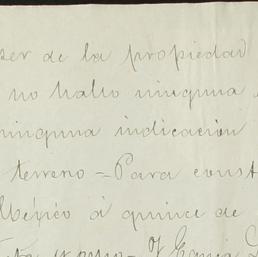 ser de la propiedad
no hallo ninguna
ninguna indicación
terreno = Para const
México á quince de